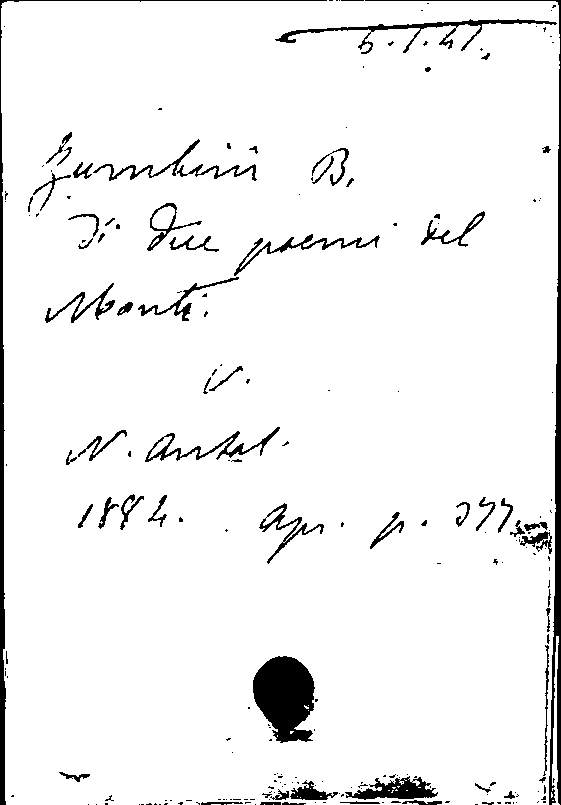 6.I.41.
Zumbini B.
Di due poemi del
Monti.
V.
N. Antol.
1884. Apr. p. 377.